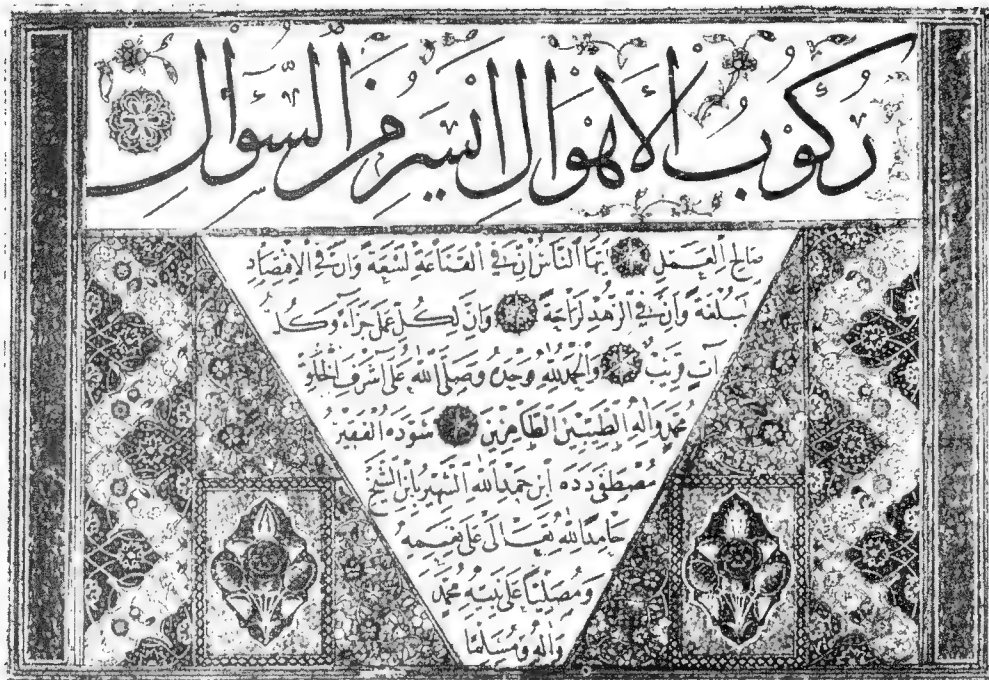 رُكُوبُ الْأَهْوَالِ أَيْسَرُ مِنَ السُّؤَالِ
صَالِحُ الْعَمَلِ أَيُّهَا النَّاسُ إِنَّ فِي الْقَنَاعَةِ لَسَعَةً وَإِنَّ فِي الْاِقْتِصَادِ
لَبُلْغَةً وَإِنَّ فِي الزُّهْدِ لَرَاحَةً وَإِنَّ لِكُلِّ عَمَلٍ جَزَاءً وَكُلُّ
آتٍ قَرِيبٌ وَالْحَمْدُ لِلّٰهِ وَحْدَهُ وَصَلَّى اللّٰهُ عَلَى أَشْرَفِ الْخَلْقِ
مُحَمَّدٍ وَآلِهِ الطَّيِّبِينَ الطَّاهِرِينَ سَوَّدَهُ الْفَقِيرُ
مُصْطَفَى دَدَه ابْنِ حَمْدِ اللّٰهِ الشَّهِيرُ بِابْنِ الشَّيْخِ
حَامِدًا لِلّٰهِ تَعَالَى عَلَى نِعَمِهِ
وَمُصَلِّيًا عَلَى نَبِيِّهِ مُحَمَّدٍ
وَآلِهِ وَمُسَلِّمًا